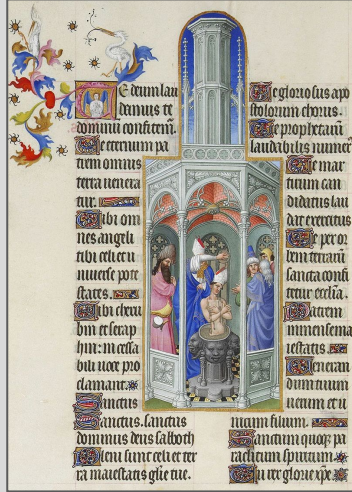 Te deum lau
damus te
dominum confitemur.
Te eternum pa
trem omnis
terra venera
tur.
Tibi om
nes angeli
tibi celi et u
niverse pote
states.
Tibi cheru
bin et seraph
hin: incessa
bili voce pro
clamant.
Sanctus
Sanctus. sanctus
dominus deus sabaoth
Pleni sunt celi et ter
ra maiestatis glorie tue.
Te gloriosus apo
stolorum chorus.
Te prophetarum
laudabilis numerus
Te mar
tirum can
didatus lau
dat exercitus
Te per or
bem terrarum
sancta confi
tetur ecclesia.
Patrem
immense ma
iestatis.
Veneran
dum tuum
verum et u
nicum filium.
Sanctum quoque pa
raclitum spiritum.
Tu rex glorie xpe.